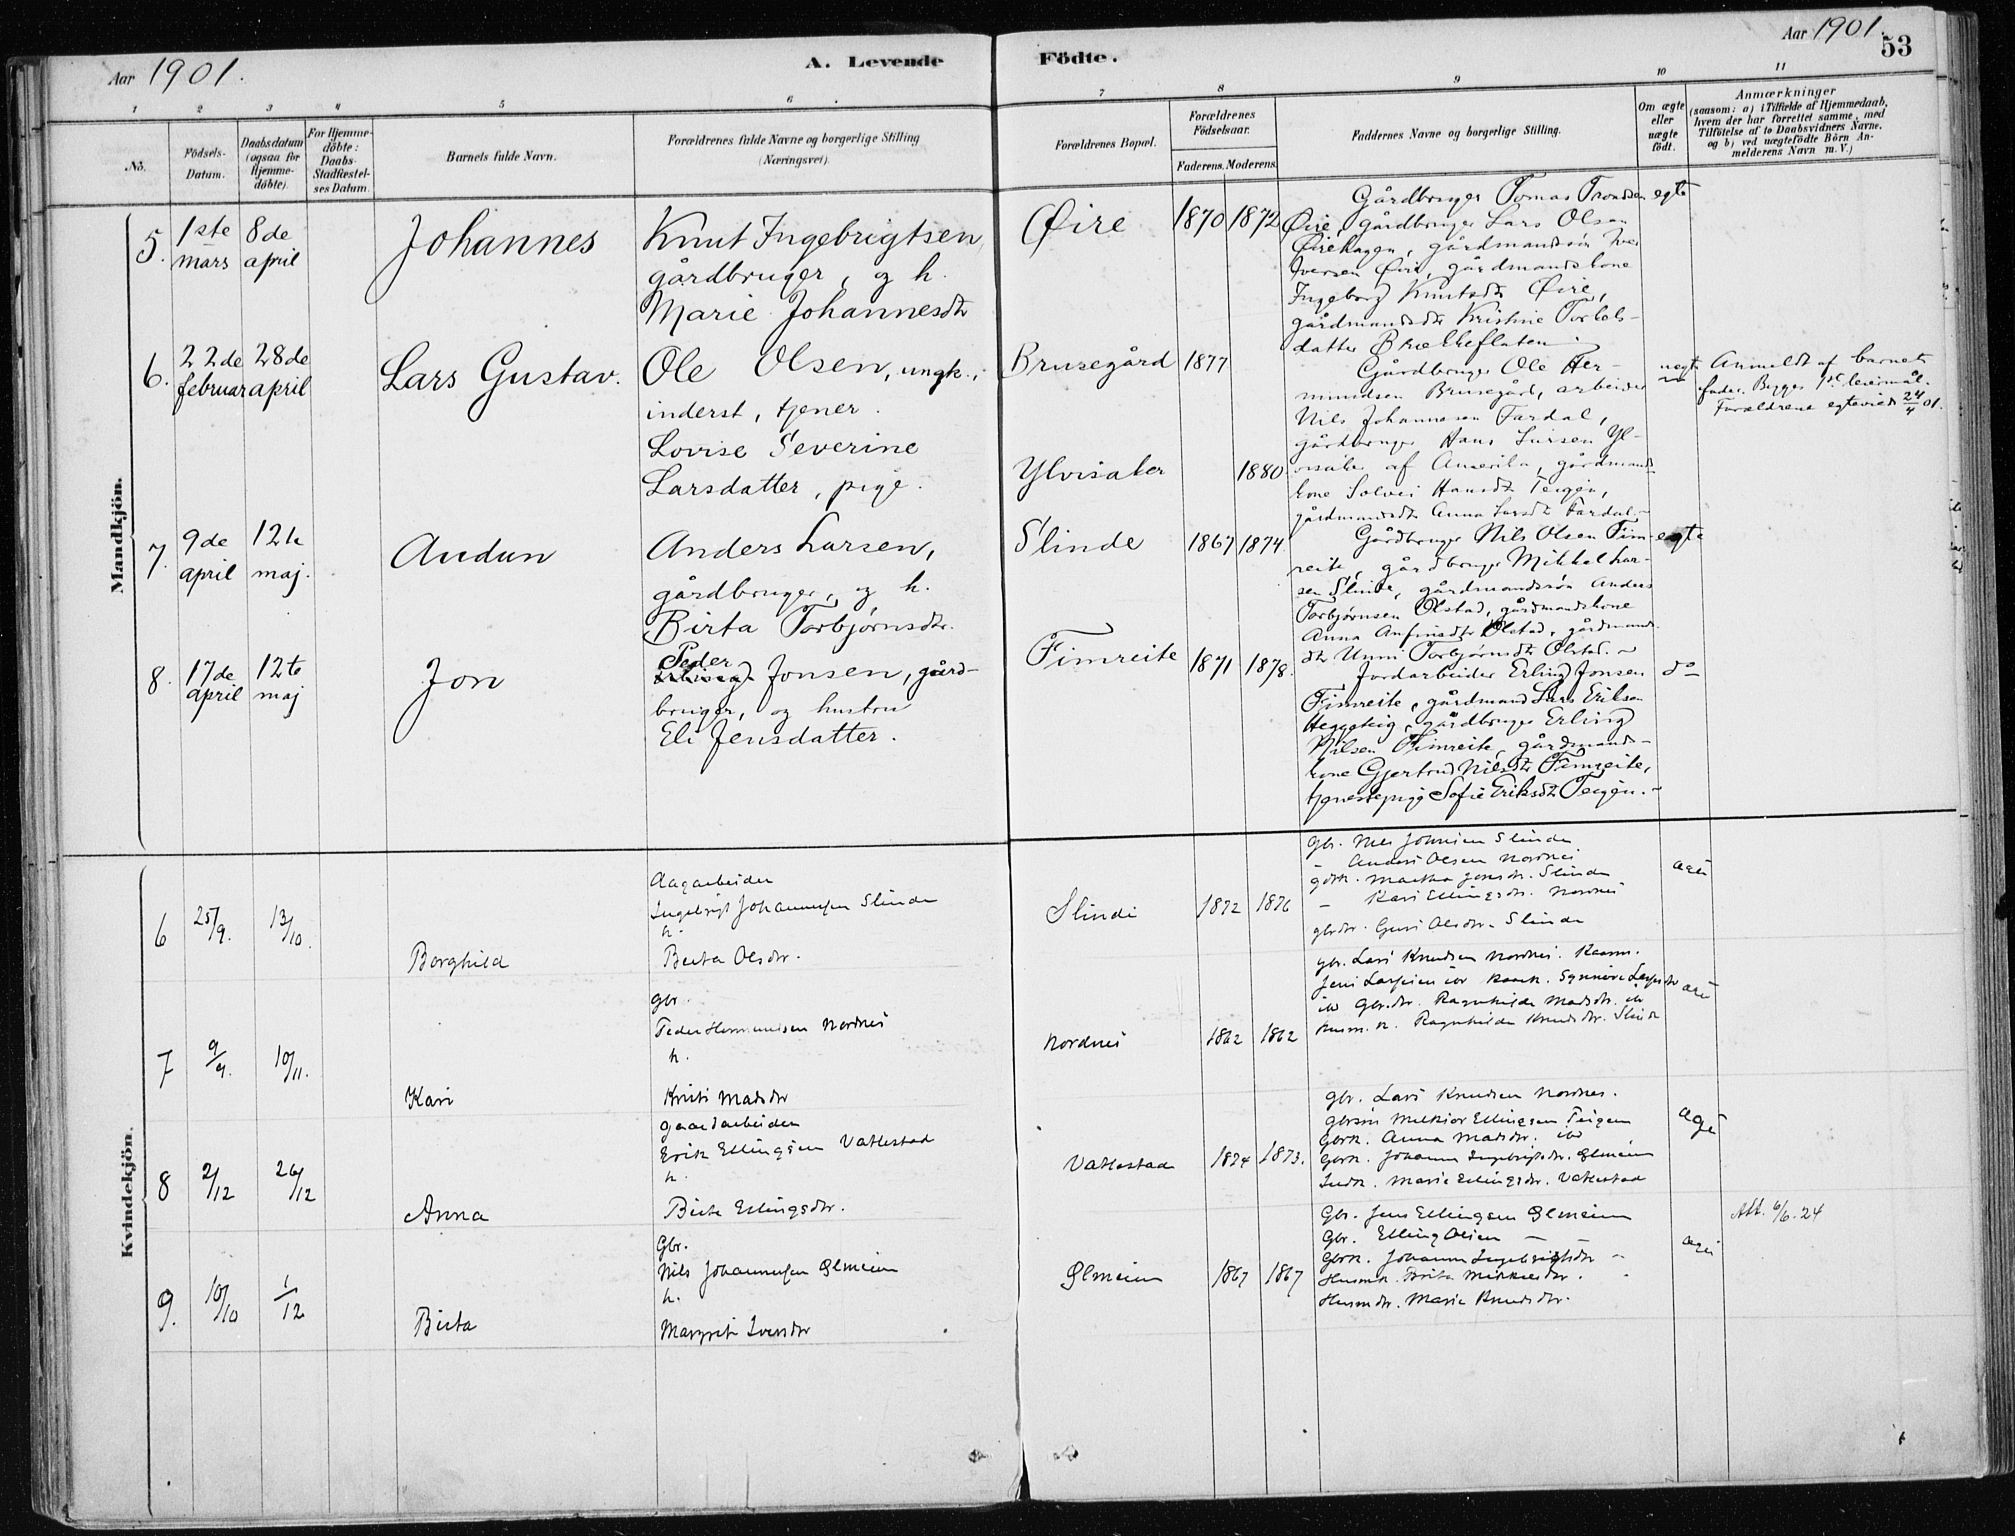 Aar 1901.
A. Levende
Födte.
Aar 1901.
53
1 2 3 4 5 6 7 8 9 10 11
No.
Födsels-Datum.
Daabsdatum (ogsaa for Hjemme-döbte).
For Hjemme-döbte: Daabs-Stadfæstel-ses Datum.
Barnets fulde Navn.
Forældrenes fulde Navne og borgerlige Stilling (Næringsvei).
Forældrenes Bopæl.
Forældrenes Födselsaar.
Faderens. Moderens.
Faddernes Navne og borgerlige Stilling.
Om ægte eller uægte födt.
Anmærkninger
(saasom: a) i Tilfælde af Hjemmedaab, hvem der har forrettet samme, med Tilföielse af to Daabsvidners Navne, og b) ved uægtefödte Börn An-melderens Navn m. V.)
Mandkjön.
5. 1ste mars
8de april
Johannes
Knut Ingebrigtsen,
gårdbruger, og h.
Marie Johannesdtr
Øire
1870 1872
Gårdbruger Tomas Trondsen
Øire, gårdbruger Lars Olsen
Øirehagen, gårdmandssøn Iver
Iversen Øire, gårdmandskone
Ingeborg Knutsdtr Øire,
gårdmandsdtr Kristine Torkels-
datter Brækkefloten
egte
6. 22de februar
28de april
Lars Gustav.
Ole Olsen, ungk.,
inderst, tjener.
Lovise Severine
Larsdatter, pige.
Brusegård 1877
Ylvisaker 1880
Gårdbruger Ole Her-
mundsen Brusegård, arbeider
Nils Johannesen Fardal,
gårdbruger Hans Larsen Yl-
visaker af Amerika, gårdmands-
kone Solvei Hansdtr Teigen,
gårdmandsdtr Anna Larsdtr Fardal.
uegte
Anmeldt af barnets
fader. Begges 1ste leiermål.
Forældrene egteviet 24/4 01.
7. 9de april
12te maj.
Audun
Anders Larsen,
gårdbruger, og h.
Birta Torbjørnsdtr.
Slinde
1867 1874
Gårdbruger Nils Olsen Fim-
reite, gårdbruger Mikkel Lar-
sen Slinde, gårdmandssøn Anders
Torbjørnsen Ølstad, gårdmandskone
Anna Anfinsdtr Ølstad, gårdmands-
dtr Unni Torbjørnsdtr Ølstad.
egte
8. 17de april
12te maj
Jon
Peder
Jonsen, gård-
bruger, og hustru
Eli Jensdatter.
Fimreite
1871 1878.
Jordarbeider Erling Jonsen
Fimreite, gårdmand Lars Eriksen
Heggeteig, gårdbruger Erling
Nilsen Fimreite, gårdmands-
kone Gjertrud Nilsdtr Fimreite,
tjenestepige Sofie Eriksdtr Teigen.
do
Kvindekjön.
6 25/9. 13/10.
Borghild
Aagarbeider
Ingebrigt Johannesen Slinde
h.
Birta Olsdtr.
Slinde
1872 1876
Gbr. Nils Johnsen Slinde
- Anders Olsen Nordnes
gdrk. Martha Jensdr. Slinde
- Kari Ellingsdr. Nordnes
gbrdtr. Guri Olsdtr. Slinde
7 9/9. 10/11.
Kari
gbr.
Peder Hermundsen Nordnes
h.
Kristi Madsdtr
Nordnes
1862 1862
gbr. Lars Knudsen Nordnes. Kaarm.
ib gbr.dr. Ragnhilda Madsdtr. ib
Husm.k. Ragnhilda Knudsdtr. Slinde
8 2/12 26/12
Anna
Gaardarbeider
Erik Ellingsen Vatlestad
h.
Birta Erlingsdtr.
Vatlestad
1874 1873.
Gbr. Lars Knudsen Nordnes.
Gbrsøn Melkior Ellingsen Teigen
Gbrk. Anna Madsdtr. ib
Gbrk. Johanna Ingebrigtsdtr. Slmeim
Indk. Marie Erlingsdtr. Vatlestad
9. 10/10 1/12
Birta
Gbr.
Nils Johannesen Elmeim
h.
Margrete Iversdtr
Elmeim
1867 1867
Gbr. Jens Ellingsen Elmeim
Gbr. Elling Olsen -
Gbrk. Johanna Ingebrigtsdtr -
Husmk. Brita Mikkelsdtr.
Husmdtr. Marie Knudsdtr.
Att. 6/6. 24